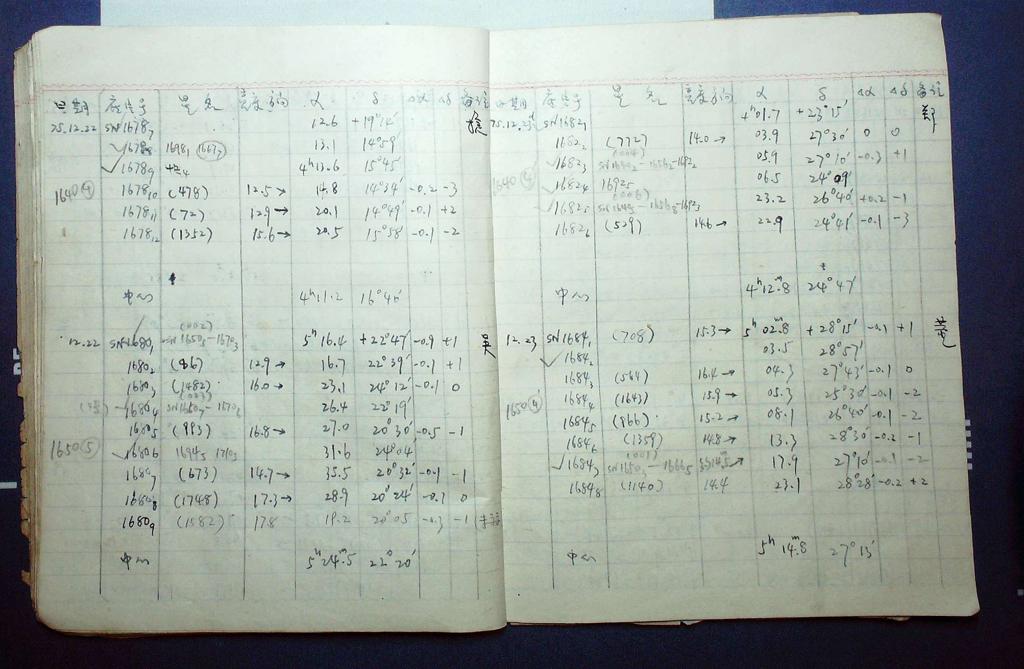 日期 底片号 星名 亮度方向 α δ Δα Δδ 备注
75.12.22 SN1678₇ 12.6 +19°14′
1678₈ 1698₁ 13.1 14°59′
1678₉ 4ʰ13.6 15°45′
1640④ 1678₁₀ (478) 12.5→ 14.8 14°34′ -0.2 -3
1678₁₁ (72) 12.9→ 20.1 14°49′ -0.1 +2
1678₁₂ (1352) 15.6→ 20.5 15°58′ -0.1 -2
中心 4ʰ11.2 16°46′
(002)
12.22 SN1680₁ SN1650₅-1670₃ 5ʰ16.4 +22°47′ -0.9 +1 吴
1680₂ (86) 12.9→ 16.7 22°39′ -0.1 +1
1680₃ (1482) 16.0→ 23.1 24°12′ -0.1 0
(003)
1680₄ 26.4 22°19′
1680₅ (993) 16.8→ 27.0 20°30′ -0.5 -1
1650⑤ 1680₆ 1694₅ 1710₃ 31.6 24°04′
1680₇ (673) 14.7→ 35.5 20°32′ -0.1 -1
1680₈ (1748) 17.3→ 28.9 20°24′ -0.1 0
1680₉ (1582) 17.8 19.2 20°05 -0.3 -1
中心 5ʰ24ᵐ.5 22°20′
日期 底片号 星名 亮度方向 α δ Δα Δδ 备注
75.12.23 SN1682₁ 4ʰ01.7 +23°15′ 郑
1682₂ (772) 14.0→ 03.9 27°30′ 0 0
(004)
1682₃ 05.9 27°10′ -0.3 +1
1640④ 1682₄ 1692₅ 06.5 24°09′
(006)
1682₅ 23.2 26°40′ +0.2 -1
1682₆ (529) 14.6→ 22.9 24°41′ -0.1 -3
中心 4ʰ12ᵐ.8 24°47′
12.23 SN1684₁ (708) 15.3→ 5ʰ02ᵐ.8 +28°15′ -0.1 +1
1684₂ 03.5 28°57′
1684₃ (564) 16.4→ 04.3 27°43′ -0.1 0
1650④ 1684₄ (1643) 15.9→ 05.3 25°30′ -0.1 -2
1684₅ (866) 15.2→ 08.1 26°40′ -0.1 -2
1684₆ (1359) 14.8→ 13.3 28°30′ -0.2 -1
(001)
1684₇ SN1650₁-1666₅ 17.9 27°10′ -0.1 -2
1684₈ (1140) 14.4 23.1 28°28′ -0.2 +2
中心 5ʰ14ᵐ.8 27°13′